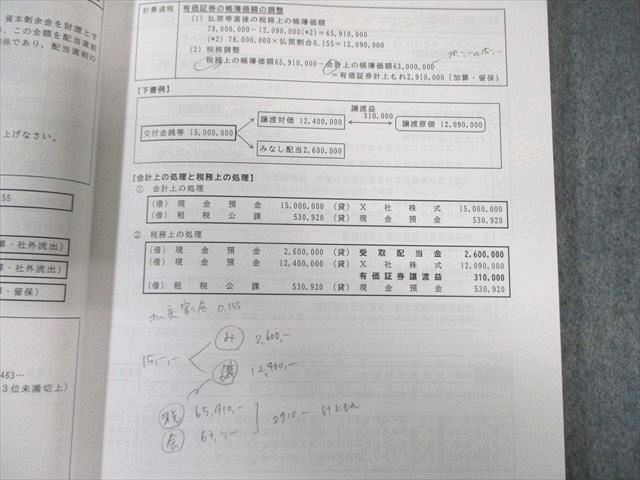 資本剰余金を財源とす
、この全額を配当直前
株であり、配当直前の
上げなさい。
55
算・社外流出)
算・社外流出)
算・留保)
463…
3位未満切上)
計算過程
有価証券の帳簿価額の調整
(1) 払戻等直後の税務上の帳簿価額
78,000,000－12,090,000(*2)＝65,910,000
(*2) 78,000,000×払戻割合0.155＝12,090,000
(2) 税務調整
税務上の帳簿価額65,910,000－会計上の帳簿価額63,000,000
＝有価証券計上もれ2,910,000 (加算・留保)
【下書例】
譲渡益
交付金銭等 15,000,000
譲渡対価 12,400,000
310,000
譲渡原価 12,090,000
みなし配当2,600,000
【会計上の処理と税務上の処理】
① 会計上の処理
(借) 現金預金 15,000,000 (貸) X社株式 15,000,000
(借) 租税公課 530,920 (貸) 現金預金 530,920
② 税務上の処理
(借) 現金預金 2,600,000 (貸) 受取配当金 2,600,000
(借) 現金預金 12,400,000 (貸) X社株式 12,090,000
有価証券譲渡益 310,000
(借) 租税公課 530,920 (貸) 現金預金 530,920
払戻割合 0.155
み 2,600,-
15,-,-
譲 12,400,-
税 65,910,-
2910,- 計上もれ
会 63,-,-